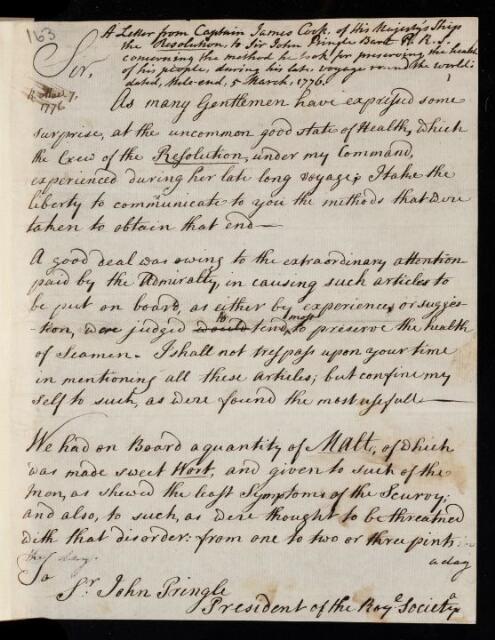 163
A Letter from Captain James Cook, of His Majesty's Ships
the Resolution, to Sir John Pringle Bart P. R. S.
concerning the method he took for preserving the health
of his people, during his late voyage round the world:
dated, Mile-end, 5 March, 1776.
Sir,
1776.
As many Gentlemen have expressed some
surprise, at the uncommon good state of Health, which
the Crew of the Resolution, under my Command,
experienced during her late long voyage; I take the
liberty to communicate to you the methods that were
taken to obtain that end—
A good deal was owing to the extraordinary attention
paid by the Admiralty, in causing such articles to
be put on board, as either by experience, or sugges-
-tion, were judged would to tend most to preserve the health
of Seamen. I shall not tresspass upon your time
in mentioning all these articles; but confine my
self to such, as were found the most usefull—
We had on Board a quantity of Malt, of which
was made sweet Wort, and given to such of the
Men, as shewed the least Symptoms of the Scurvy;
and also, to such, as were thought to be threatned
with that disorder: from one to two or three pints
a day
To
Sr. John Pringle
President of the Roy.e Society